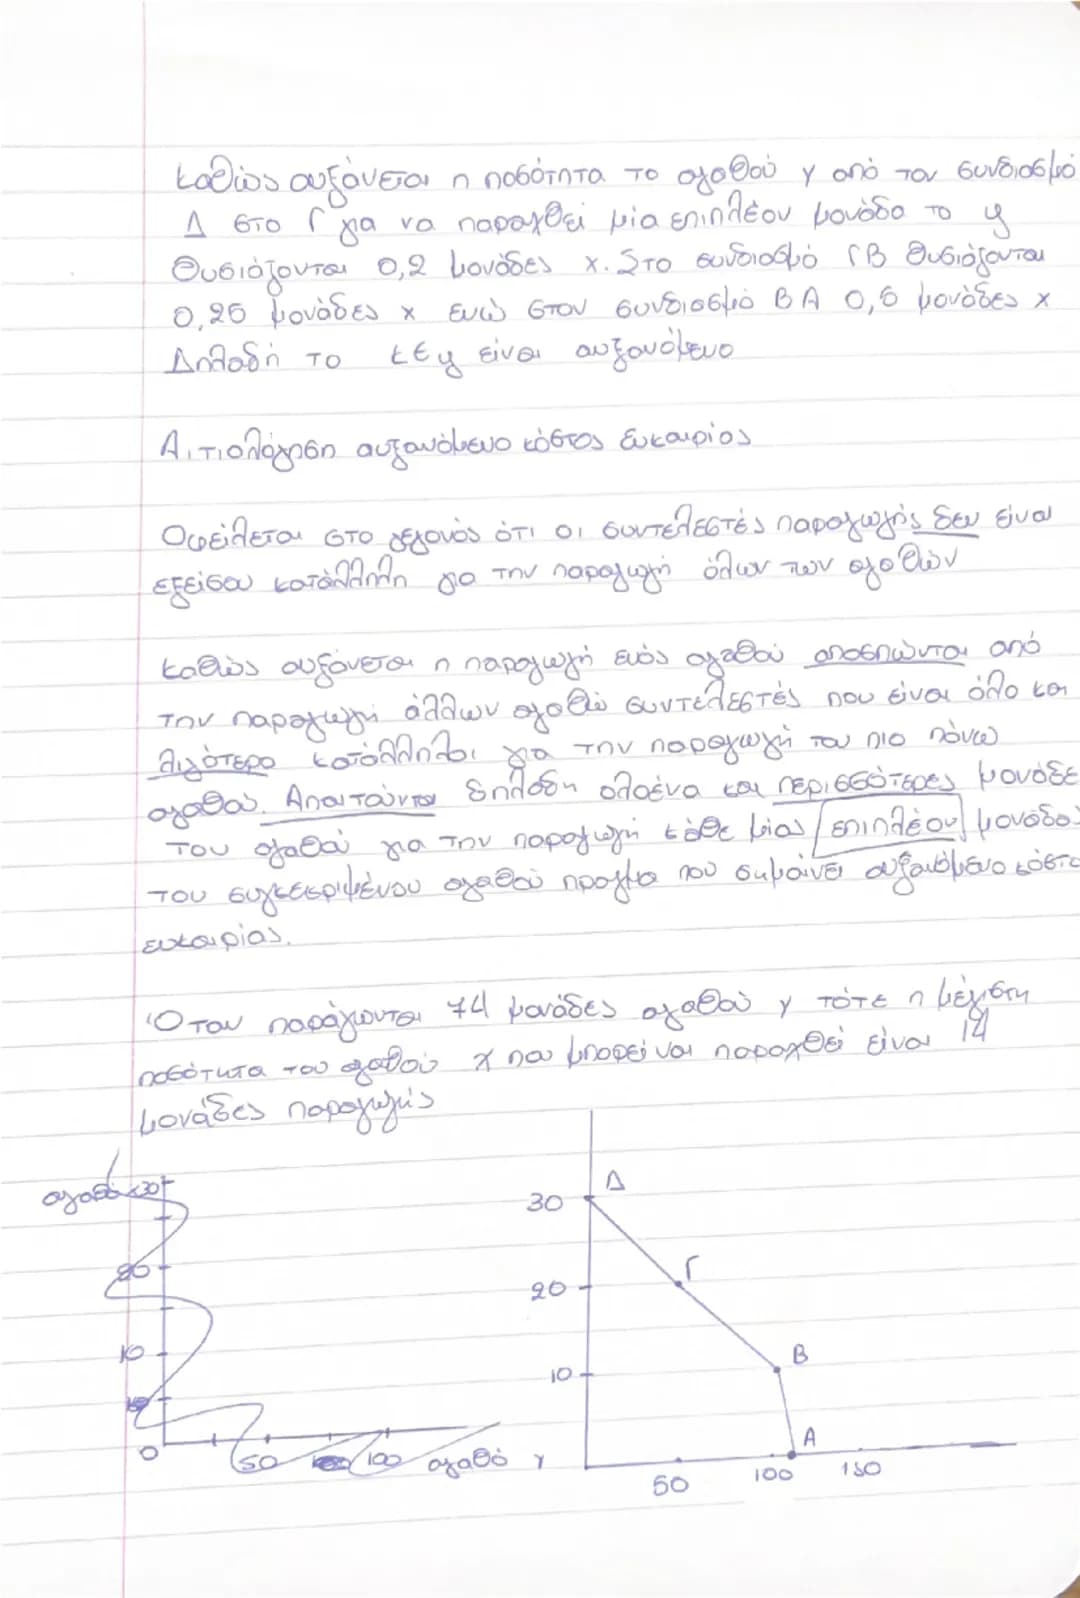 Καθώς αυξάνεται η ποσότητα το αγαθού y από τον συνδιασμό
Δ στο Γ για να παραχθεί μία επιπλέον μονάδα το y
θυσιάζονται 0,2 μονάδες x. Στο συνδιασμό ΓΒ θυσιάζονται
0,25 μονάδες x ενώ στον συνδιασμό ΒΑ 0,5 μονάδες x
Δηλαδή το ΚΕy είναι αυξανόμενο
Αιτιολόγηση αυξανόμενο κόστος ευκαιρίας
Οφείλεται στο γεγονός ότι οι συντελεστές παραγωγής δεν είναι
εξείσου κατάλληλη για την παραγωγή όλων των αγαθών
Καθώς αυξάνεται η παραγωγή ενός αγαθού αποσπώνται από
την παραγωγή άλλων αγαθώ συντελεστές που είναι όλο και
λιγότερο κατάλληλοι για την παραγωγή του πιο πάνω
αγαθού. Απαιτούνται δηλαδη ολοένα και περισσότερες μονάδε
του αγαθού για την παραγωγή κάθε μίας επιπλέον μονάδας
του συγκεκριμένου αγαθού πραγμα που σημαίνει αυξανόμενο κόστο
ευκαιρίας.
Όταν παράγονται 74 μονάδες αγαθού y τότε η μέγιστη
ποσότητα του αγαθού x που μπορεί να παραχθεί είναι 14
μονάδες παραγωγής
αγαθό x 30
20
10
0 50 100 αγαθό y
30 Δ
20 Γ
10 Β
Α
50 100 150